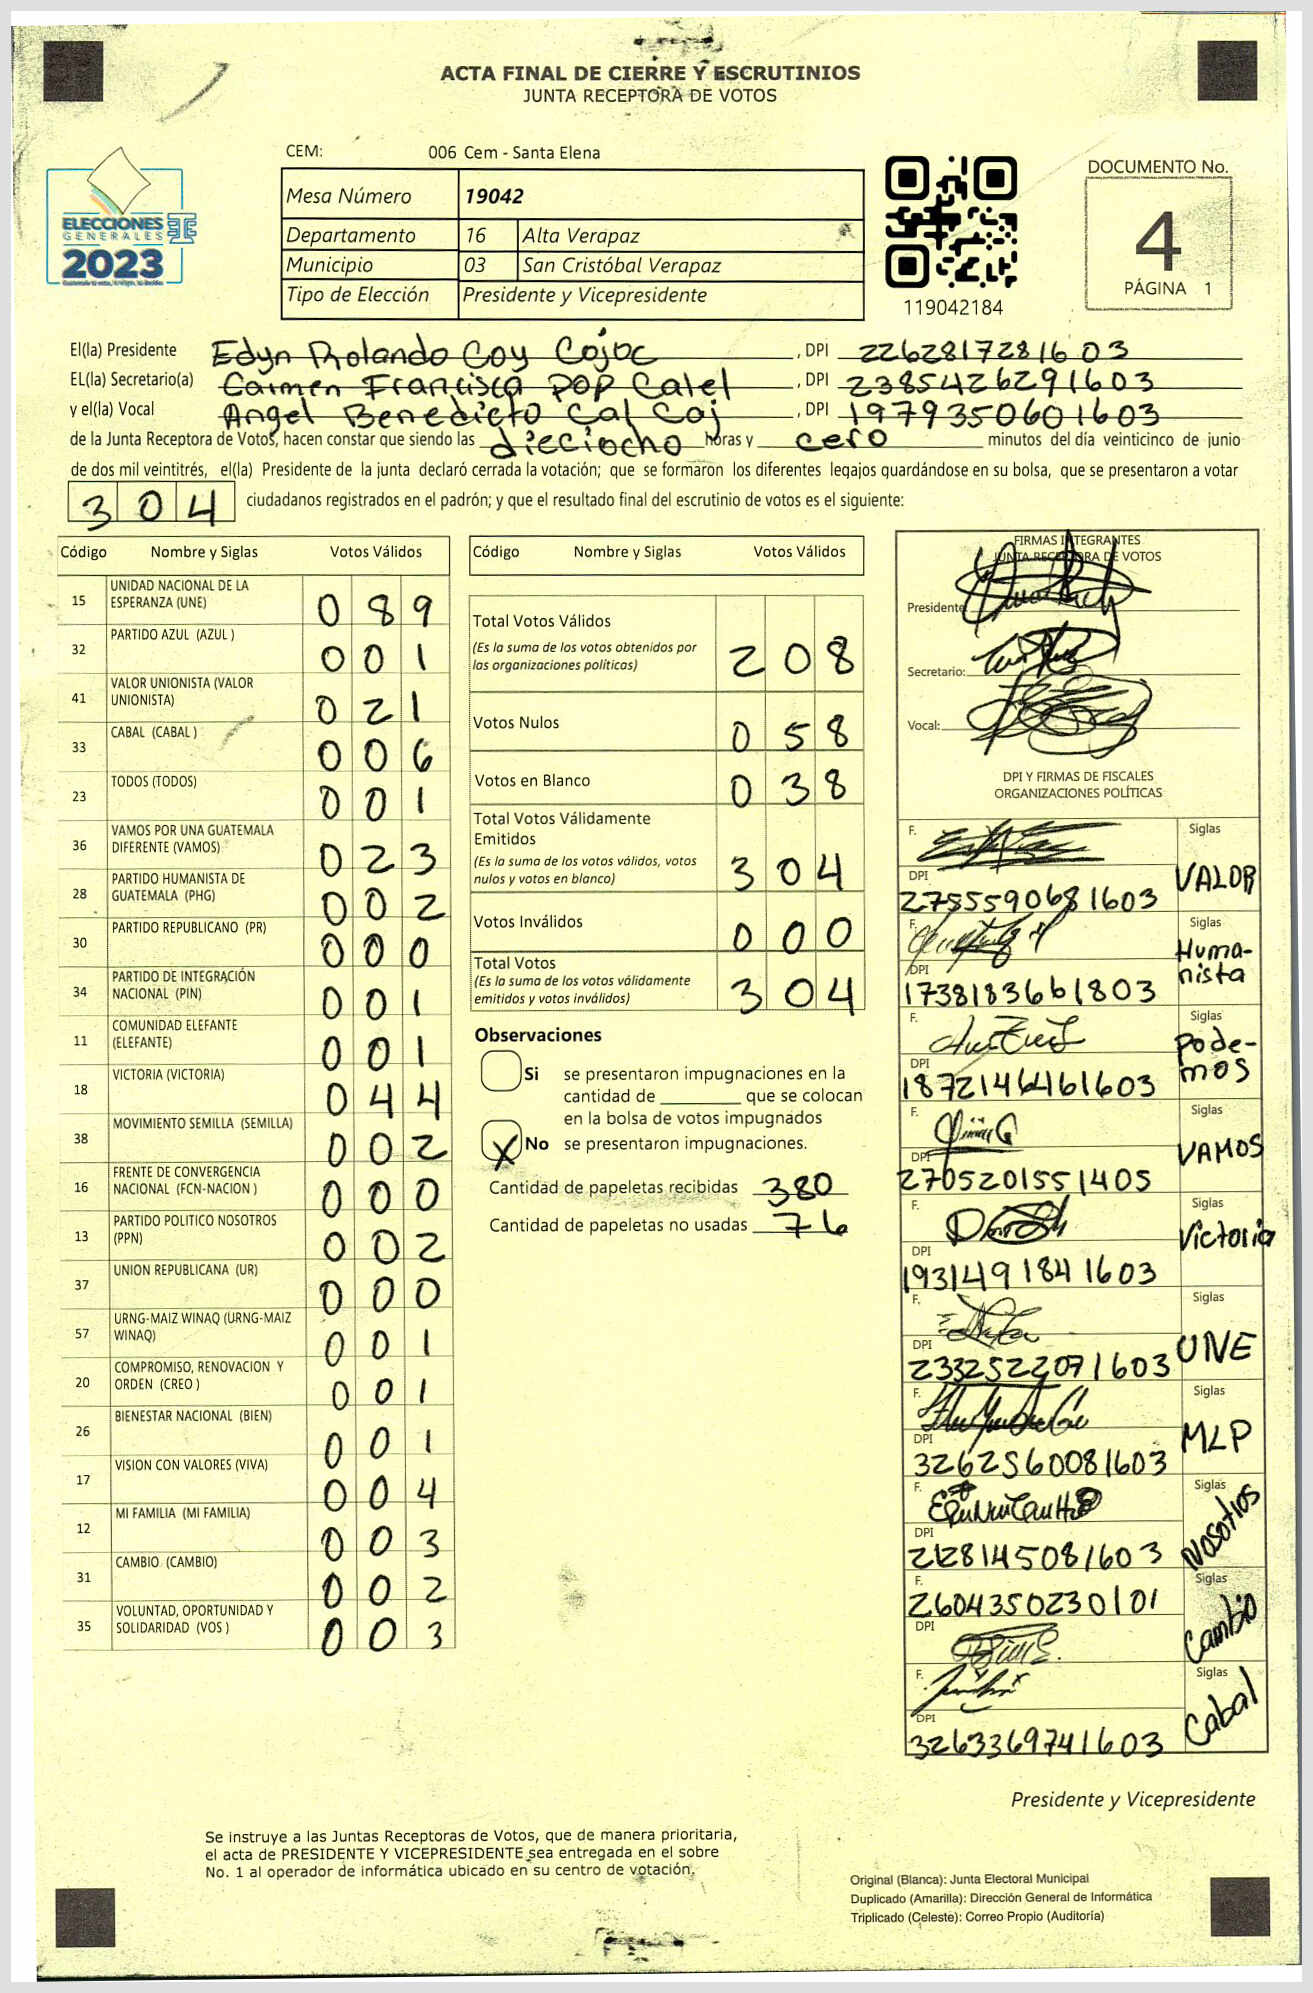 ACTA FINAL DE CIERRE Y ESCRUTINIOS
JUNTA RECEPTORA DE VOTOS
CEM: 006 Cem - Santa Elena
ELECCIONES
GENERALES
2023
Mesa Número 19042
Departamento 16 Alta Verapaz
Municipio 03 San Cristóbal Verapaz
Tipo de Elección Presidente y Vicepresidente
119042184
DOCUMENTO No.
4
PÁGINA 1
El(la) Presidente Edyn Rolando Coy Cojoc, DPI 2262817281603
EL(la) Secretario(a) Carmen Francisca POP Calel, DPI 2385426291603
y el(la) Vocal Angel Benedicto Cal Coj, DPI 1979350601603
de la Junta Receptora de Votos, hacen constar que siendo las dieciocho horas y cero minutos del día veinticinco de junio
de dos mil veintitrés, el(la) Presidente de la junta declaró cerrada la votación; que se formaron los diferentes legajos guardándose en su bolsa, que se presentaron a votar
304 ciudadanos registrados en el padrón; y que el resultado final del escrutinio de votos es el siguiente:
Código Nombre y Siglas Votos Válidos
15 UNIDAD NACIONAL DE LA ESPERANZA (UNE) 089
32 PARTIDO AZUL (AZUL ) 001
41 VALOR UNIONISTA (VALOR UNIONISTA) 021
33 CABAL (CABAL ) 006
23 TODOS (TODOS) 001
36 VAMOS POR UNA GUATEMALA DIFERENTE (VAMOS) 023
28 PARTIDO HUMANISTA DE GUATEMALA (PHG) 002
30 PARTIDO REPUBLICANO (PR) 000
34 PARTIDO DE INTEGRACIÓN NACIONAL (PIN) 001
11 COMUNIDAD ELEFANTE (ELEFANTE) 001
18 VICTORIA (VICTORIA) 044
38 MOVIMIENTO SEMILLA (SEMILLA) 002
16 FRENTE DE CONVERGENCIA NACIONAL (FCN-NACION ) 000
13 PARTIDO POLITICO NOSOTROS (PPN) 002
37 UNION REPUBLICANA (UR) 000
57 URNG-MAIZ WINAQ (URNG-MAIZ WINAQ) 001
20 COMPROMISO, RENOVACION Y ORDEN (CREO ) 001
26 BIENESTAR NACIONAL (BIEN) 001
17 VISION CON VALORES (VIVA) 004
12 MI FAMILIA (MI FAMILIA) 003
31 CAMBIO (CAMBIO) 002
35 VOLUNTAD, OPORTUNIDAD Y SOLIDARIDAD (VOS ) 003
Código Nombre y Siglas Votos Válidos
Total Votos Válidos 208
(Es la suma de los votos obtenidos por
las organizaciones políticas)
Votos Nulos 058
Votos en Blanco 038
Total Votos Válidamente
Emitidos 304
(Es la suma de los votos válidos, votos
nulos y votos en blanco)
Votos Inválidos 000
Total Votos 304
(Es la suma de los votos válidamente
emitidos y votos inválidos)
Observaciones
Si se presentaron impugnaciones en la
cantidad de ________ que se colocan
en la bolsa de votos impugnados
X No se presentaron impugnaciones.
Cantidad de papeletas recibidas 380
Cantidad de papeletas no usadas 76
FIRMAS INTEGRANTES
JUNTA RECEPTORA DE VOTOS
Presidente:
Secretario:
Vocal:
DPI Y FIRMAS DE FISCALES
ORGANIZACIONES POLÍTICAS
F. Siglas VALOR
DPI 2755590681603
F. Siglas Humanista
DPI 1738183661803
F. Siglas Podemos
DPI 1872146461603
F. Siglas VAMOS
DPI 2705201551405
F. Siglas Victoria
DPI 1931491841603
F. Siglas UNE
DPI 2332522071603
F. Siglas MLP
DPI 3262560081603
F. Siglas Nosotros
DPI 2128145081603
F. 2604350230101 Siglas Cambio
DPI
F. Siglas Cabal
DPI 3263369741603
Presidente y Vicepresidente
Se instruye a las Juntas Receptoras de Votos, que de manera prioritaria,
el acta de PRESIDENTE Y VICEPRESIDENTE sea entregada en el sobre
No. 1 al operador de informática ubicado en su centro de votación.
Original (Blanca): Junta Electoral Municipal
Duplicado (Amarilla): Dirección General de Informática
Triplicado (Celeste): Correo Propio (Auditoría)